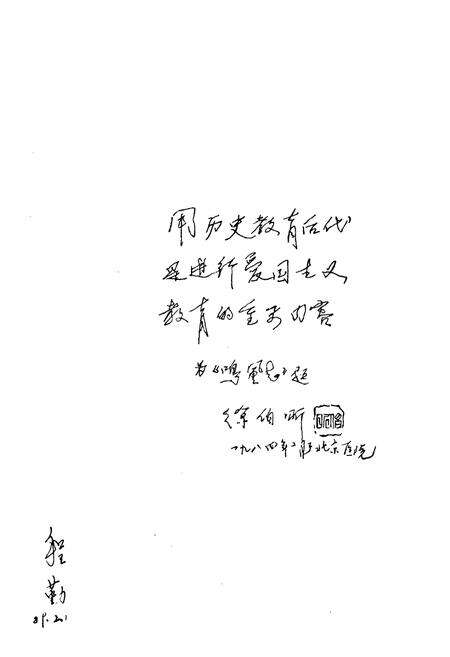 用历史教育后代
是进行爱国主义
教育的重要内容
为《鸣
题
徐伯昕
一九八四年二月于北京医院
程
勤